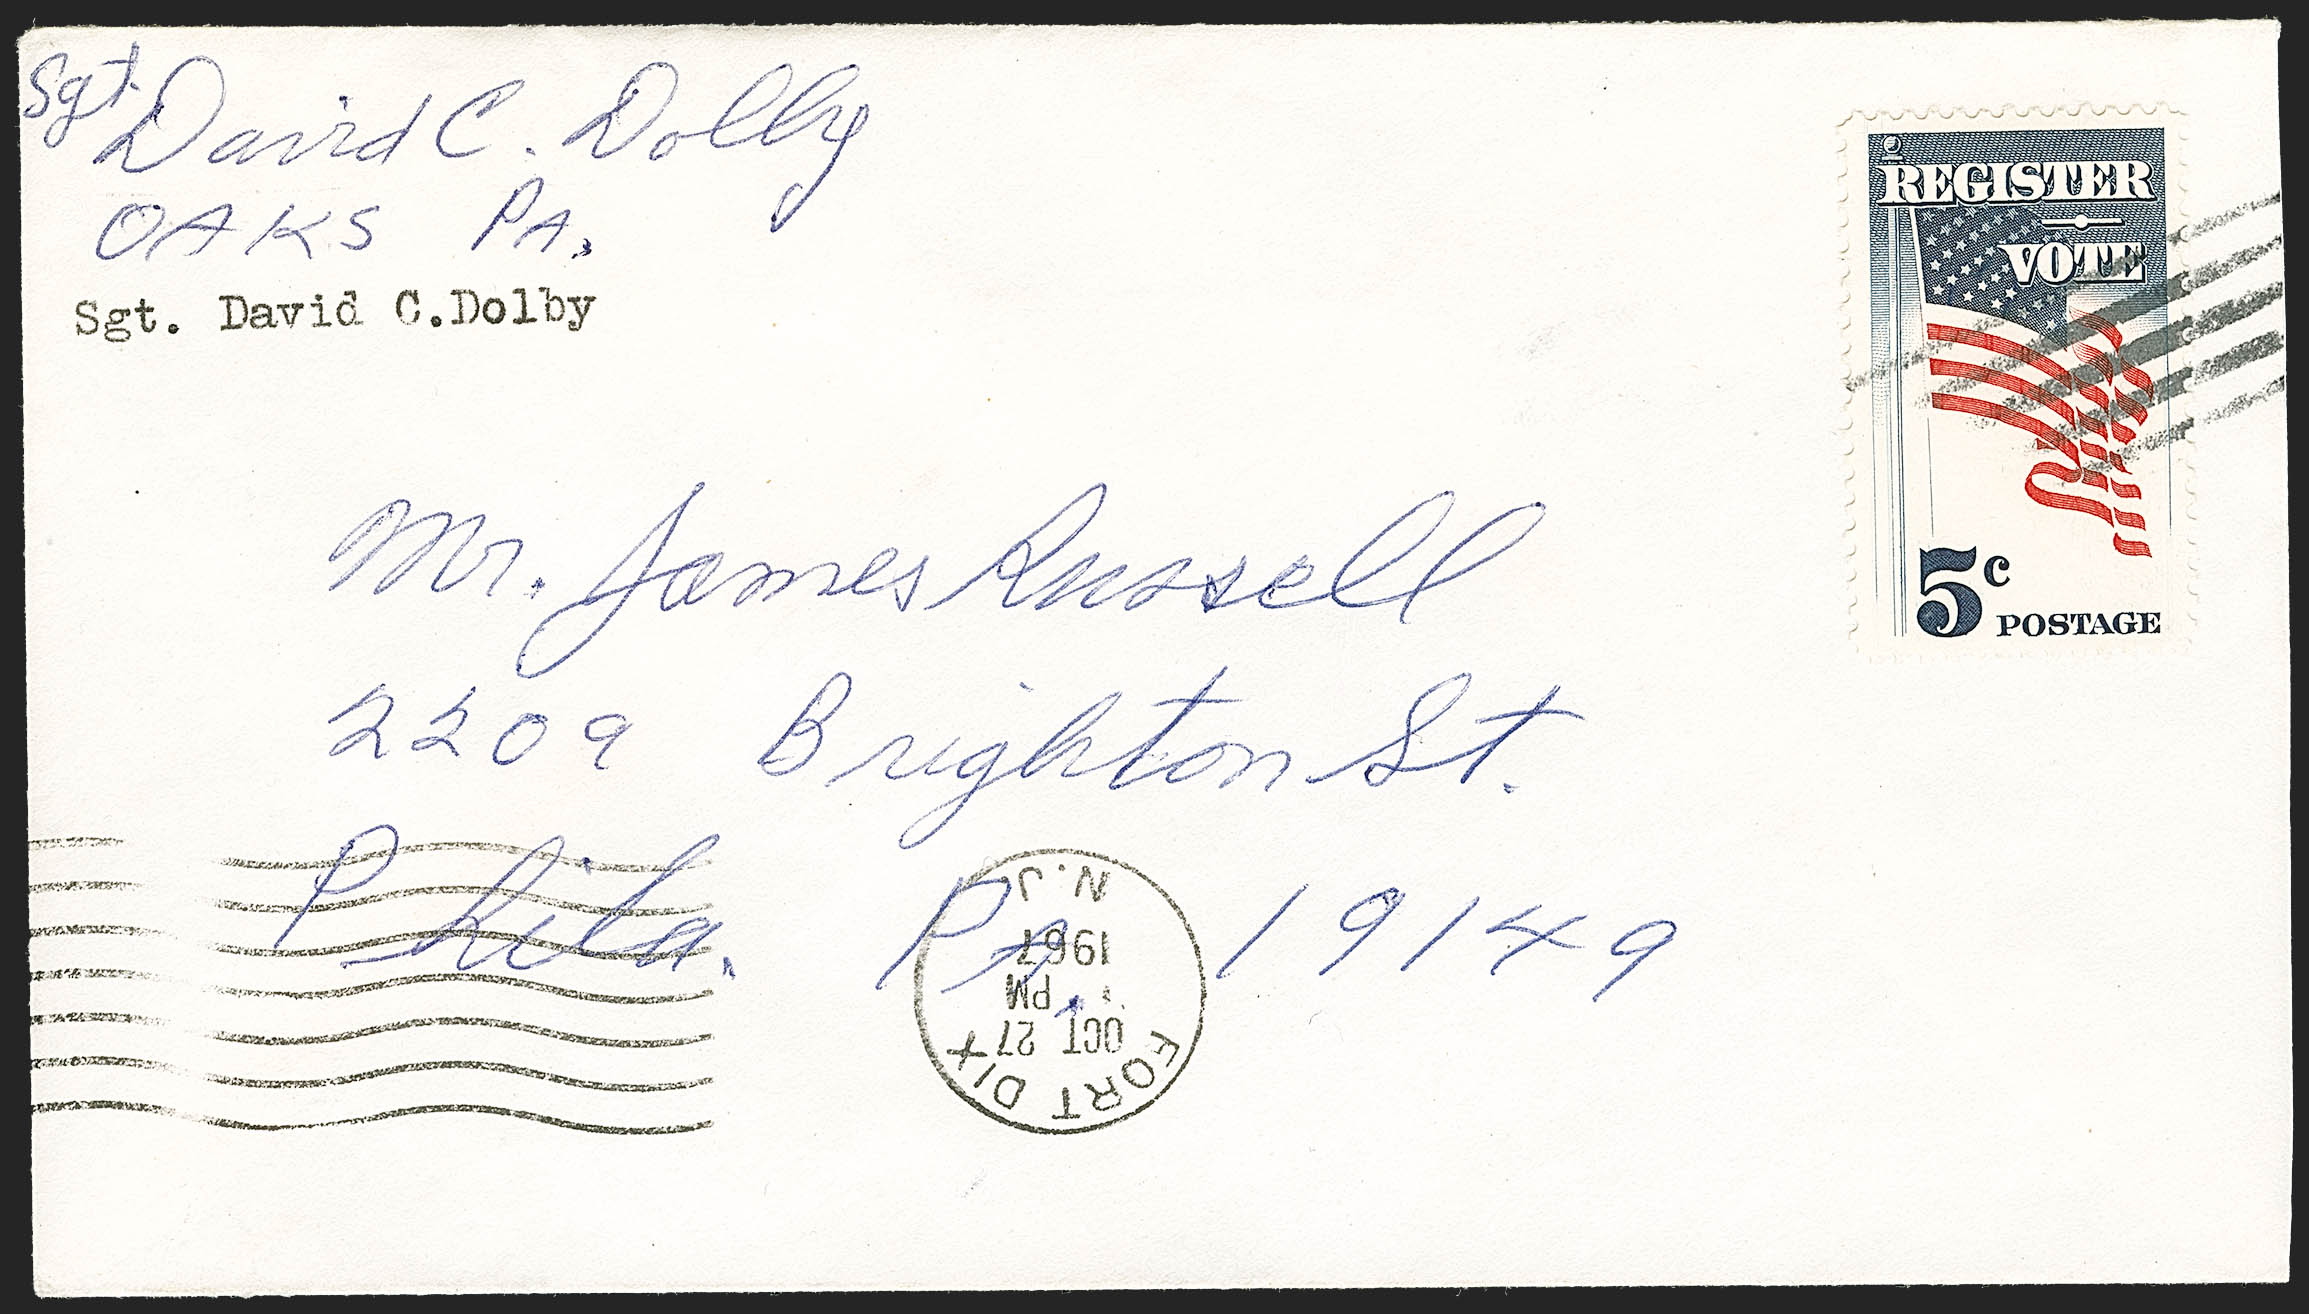 Sgt. David C. Dolby
OAKS PA.
Sgt. David C.Dolby
REGISTER
VOTE
5c POSTAGE
Mr. James Russell
2209 Brighton St.
Phila. PA. 19149
FORT DIX
OCT 27
PM
1967
N.J.